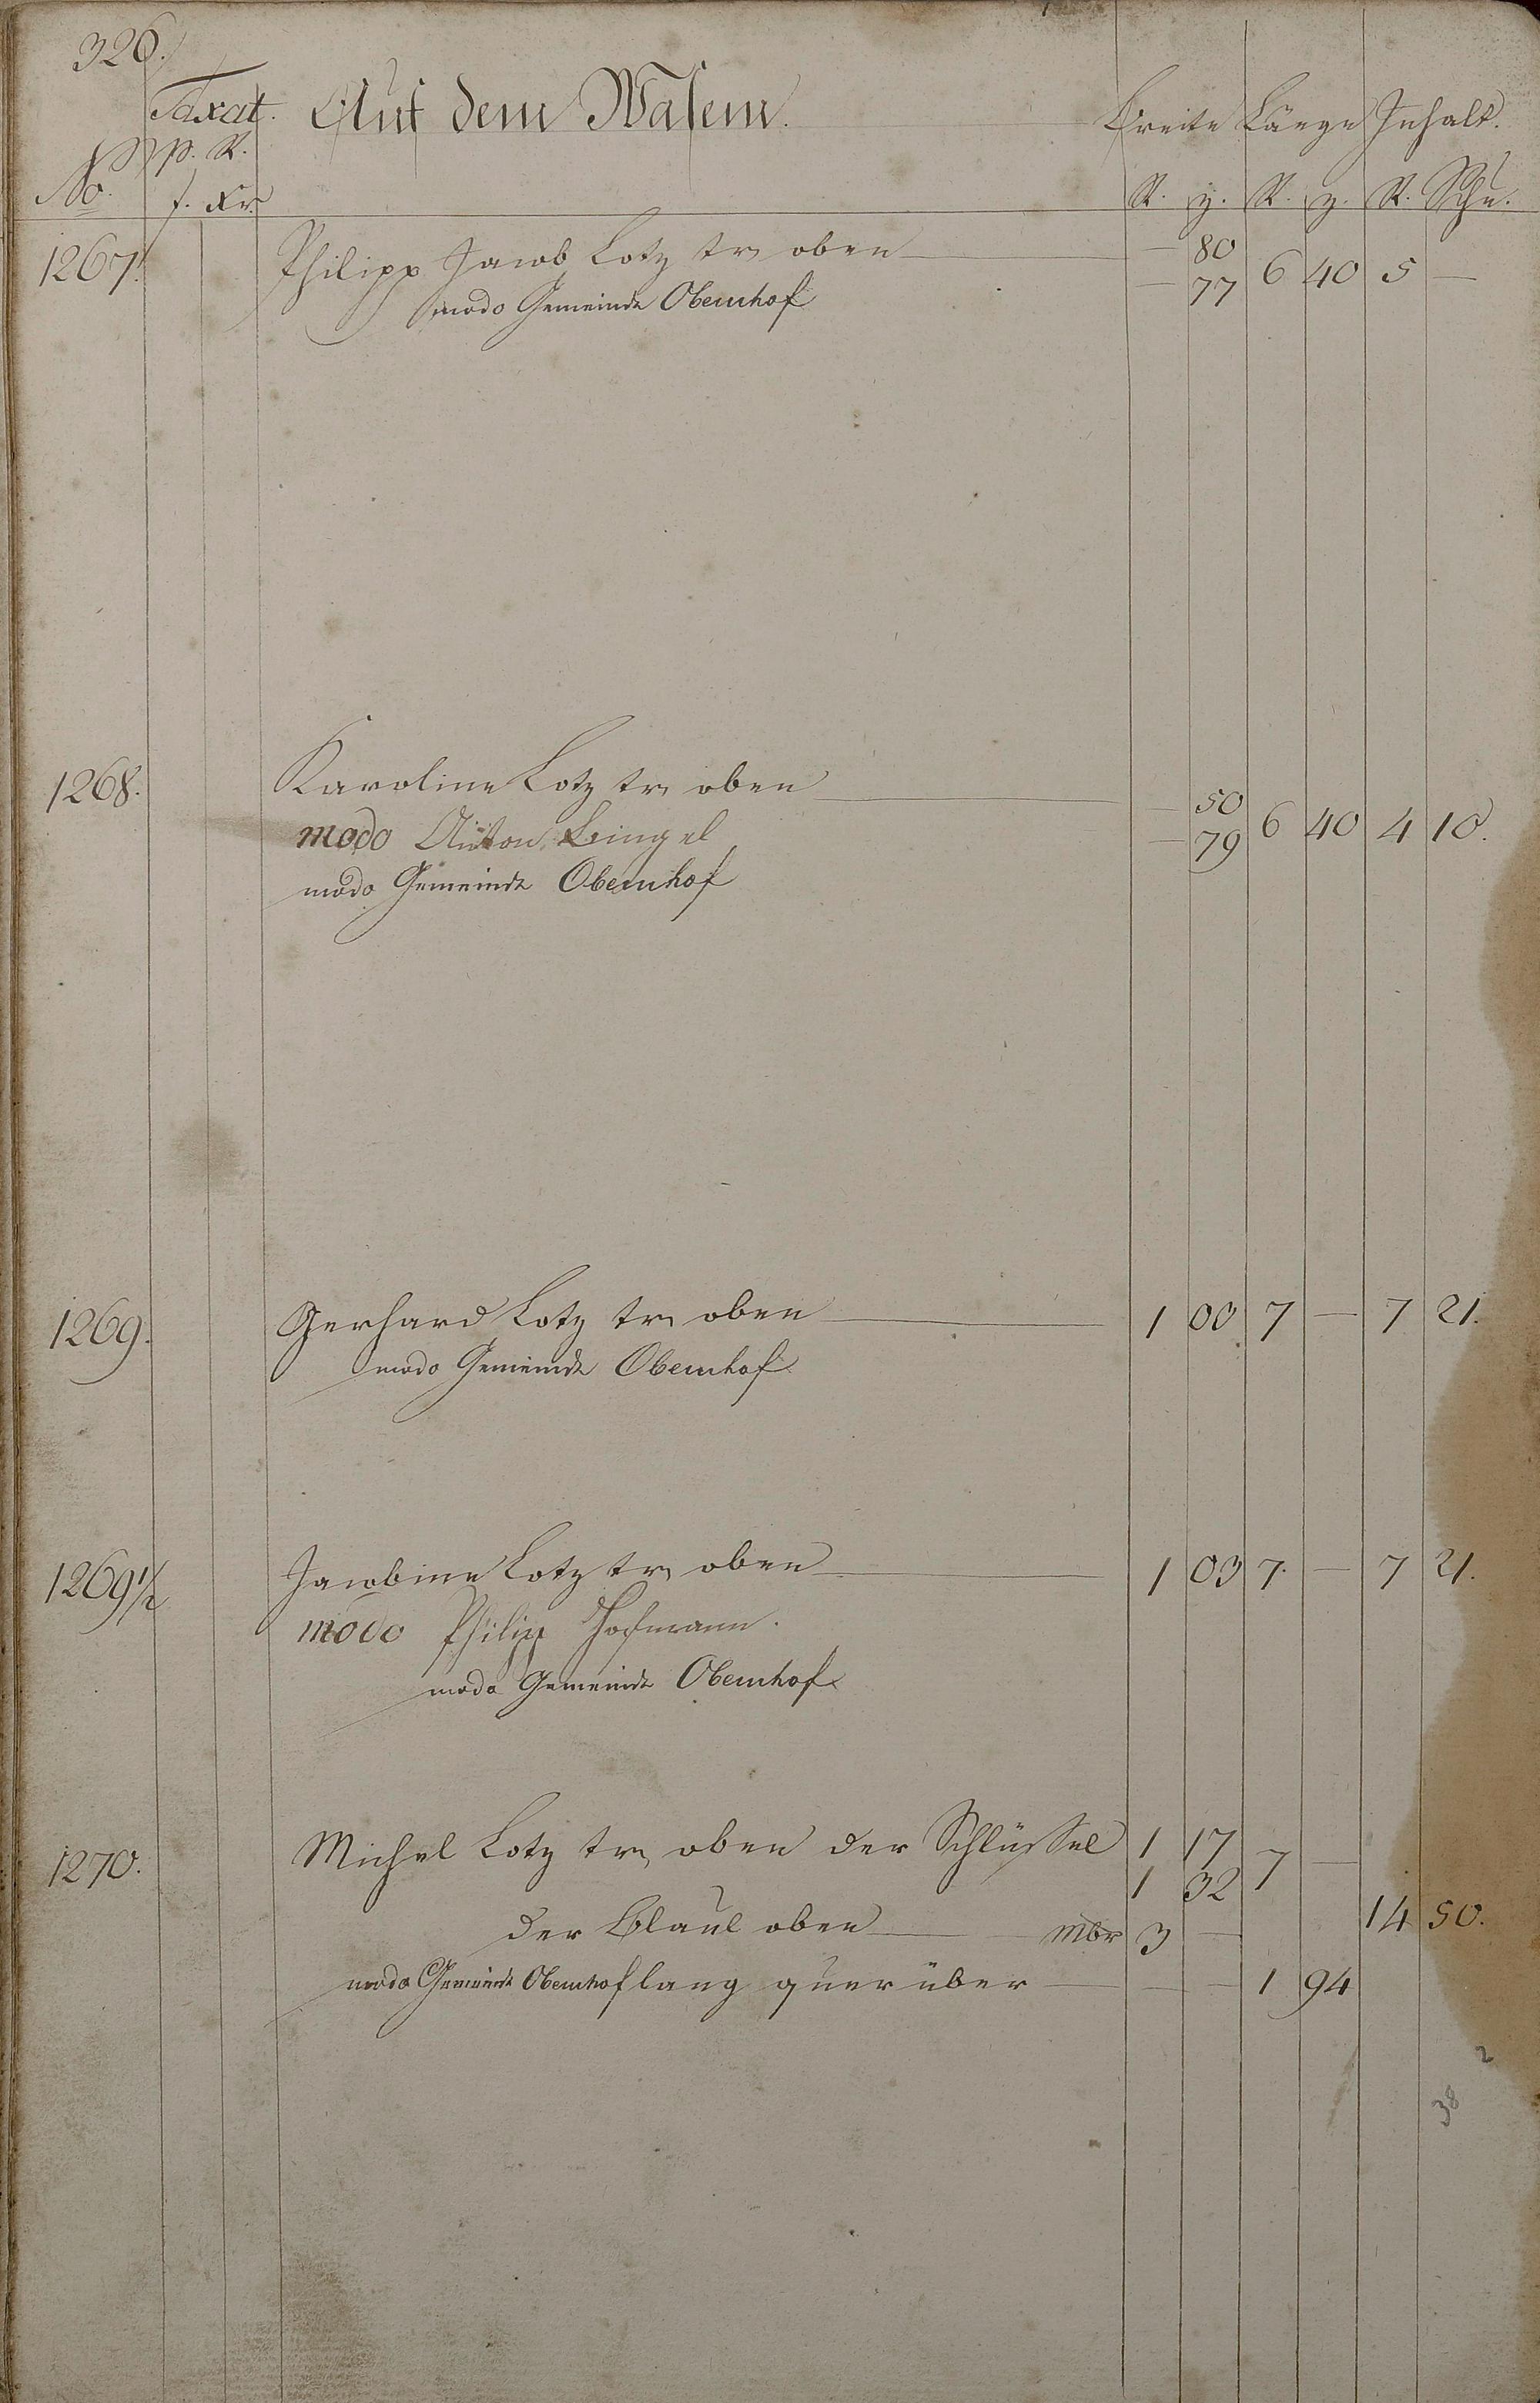 326.
Taxat. Auf dem Wasem. Breite Länge Inhalt.
p. R.
No. f. xr. R. z. R. z. R. Schu.
1267. Philipp Jacob Lotz tr oben — 80 6 40 5 —
modo Gemeinde Obernhof — 77
1268. Karoline Lotz tr oben — 50 6 40 4 10.
modo Anton Bingel — 79
modo Gemeinde Obernhof
1269. Gerhard Lotz tr oben 1 03 7 — 7 21.
modo Gemeinde Obernhof
1269 1/2 Jacobine Lotz tr oben 1 03 7. — 7 21.
modo Philip Hofmann.
modo Gemeinde Obernhof
1270. Michel Lotz tr oben der Schlüssel 1 17 7 —
1 32
der Blaul oben mbr 3 — 14 50.
modo Gemeinde Obernhof lang quer über — — 1 94
2
38